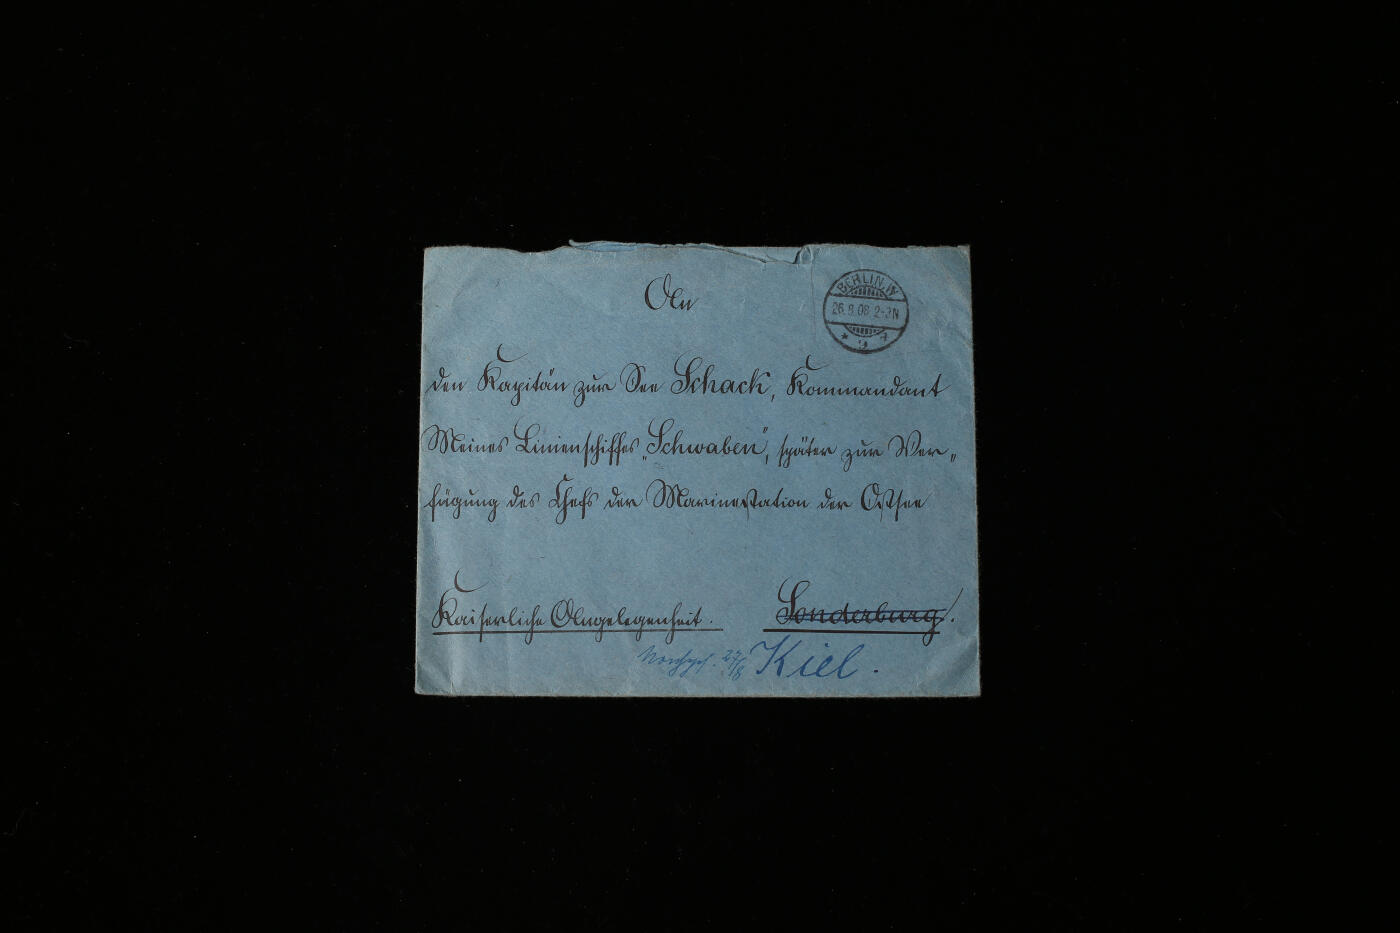 BERLIN W
26.8.08 2-3N
* 9 7
An
den Kapitän zur See Schack, Kommandant
Meines Linienschiffes „Schwaben“, später zur Ver-
fügung des Chefs der Marinestation der Ostsee
Kaiserliche Angelegenheit. Sonderburg.
27/8 Kiel.